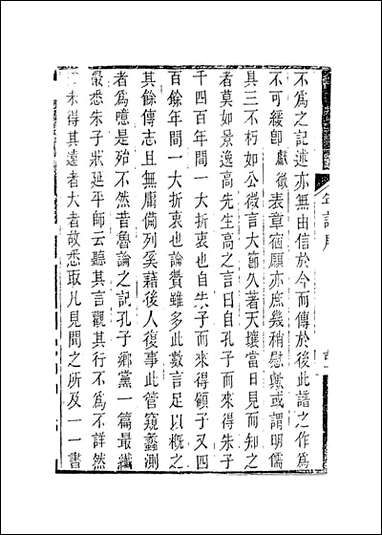 不爲之記述亦無由信於今而傳於後此譜之作爲
不可緩卽獻徵表章宿願亦庶幾稍慰歟或謂明儒
具三不朽如公微言大節久著天壤當日見而知之
者莫如景逸高先生高之言曰自孔子而來得朱子
千四百年間一大折衷也自朱子而來得顧子又四
百餘年間一大折衷也論贊雖多此數言足以槪之
其餘傳志且無庸備列奚藉後人復事此管窺蠡測
者爲噫是殆不然昔魯論之記孔子鄉黨一篇最纖
最悉朱子狀延平師云聽其言觀其行不爲不詳然
未得其遠者大者故悉取凡見聞之所及一一書
年譜序